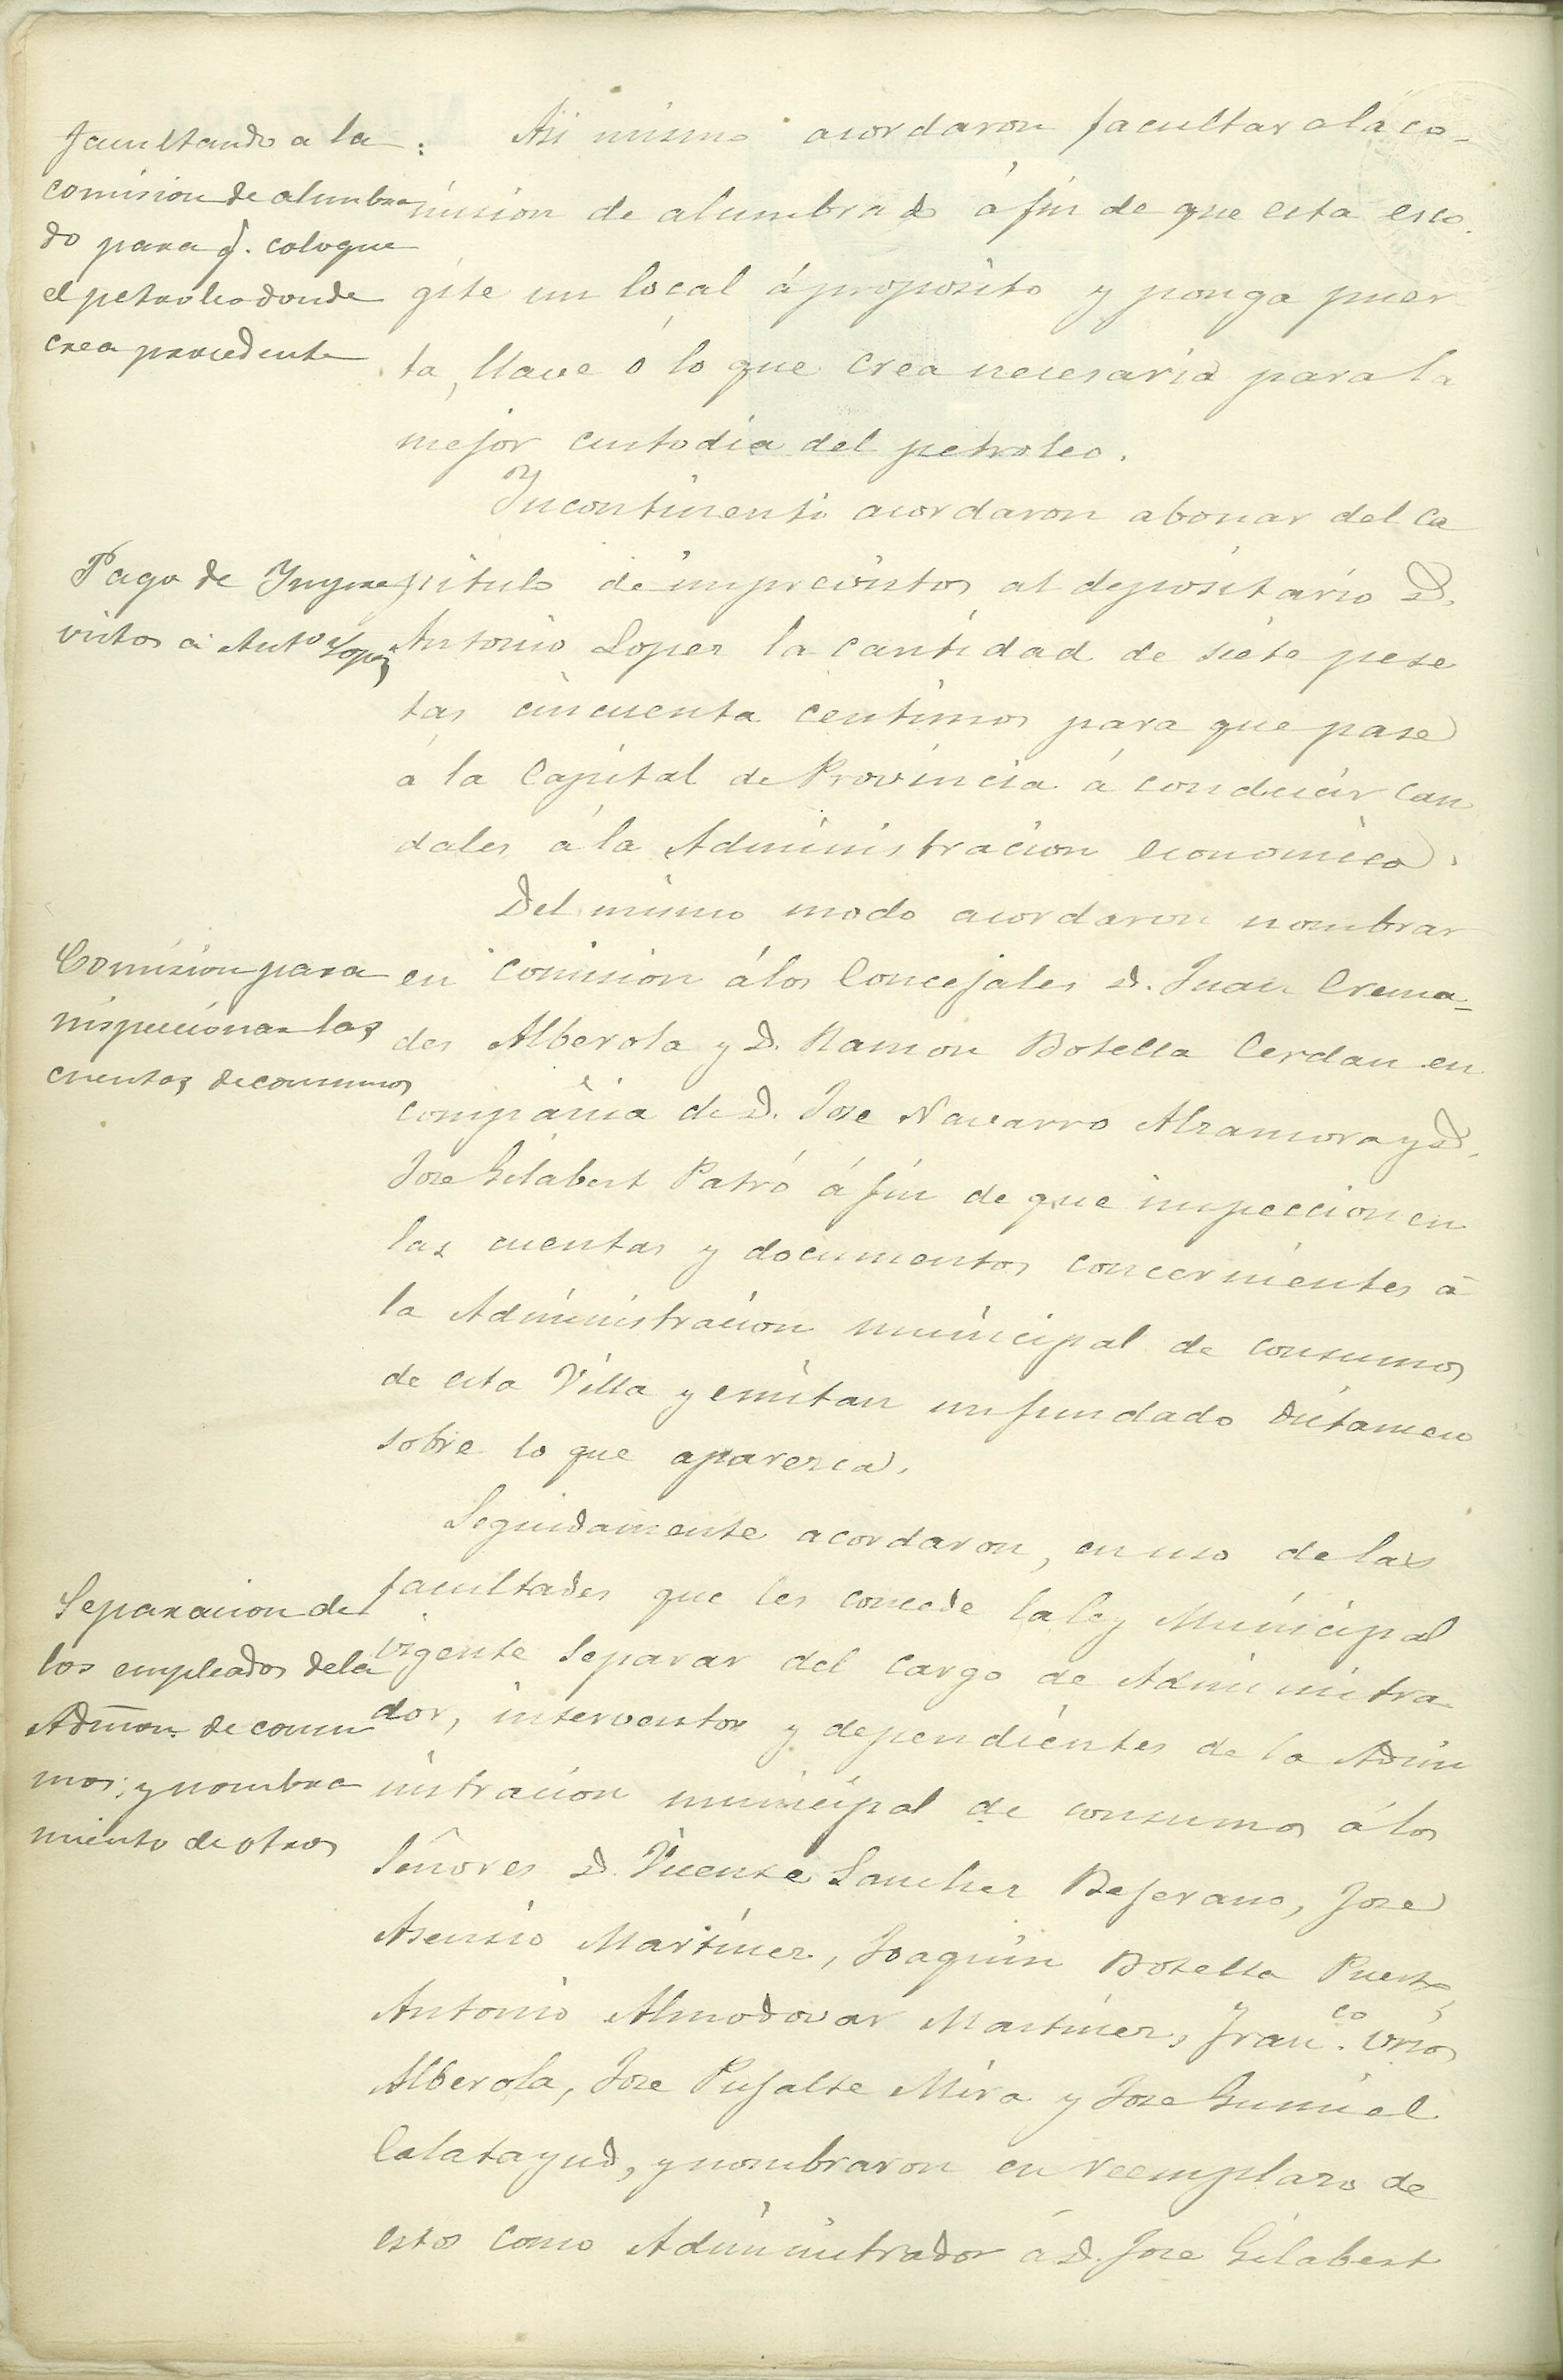 facultando a la
comision de alumbra
do para q. coloque
el petroleo donde
crea procedente
Asi mismo acordaron facultar a la co-
mision de alumbrado á fin de que esta esco.
gite un local ápropósito y ponga puer
ta, llave ó lo que crea necesario para la
mejor custodia del petroleo.
Incontinenti acordaron abonar del ca
Pago de Impre
vistos a Anto. Lopez
pitulo de imprevistos al depositario D.
Antonio Loper la cantidad de siete pese
tas cincuenta centimos para que pase
á la Capital de Provincia á conducir cau
dales á la Administracion economica.
Del mismo modo acordaron nombrar
Comision para
inspeccionar las
cuentas de consumos
en comision á los Concejales D. Juan Crema-
des Alberola y D. Ramon Botella Cerdan en
compañia de D. Jose Navarro Alzamora y D.
Jose Gilabert Patró á fin de que inspeccionen
las cuentas y documentos concernientes á
la Administracion municipal de consumos
de esta Villa y emitan un fundado dictamen
sobre lo que aparezca.
Seguidamente acordaron, en uso de las
Separacion de
los empleados de la
Admon. de consu
mos; y nombra
miento de otros
facultades que les concede la ley Municipal
vigente separar del cargo de Administra
dor, interventor y dependientes de la Admi
nistracion municipal de consumos á los
Señores D. Vicente Sancher Bejerano, Jose
Asensio Martiner, Joaquin Botella Puerto,
Antonio Almodovar Martiner, Franco. Urios
Alberola, Jose Pujalte Mira y Jose Gumiel
Calatayud, y nombraron en reemplazo de
estos como Administrador á D. Jose Gilabert